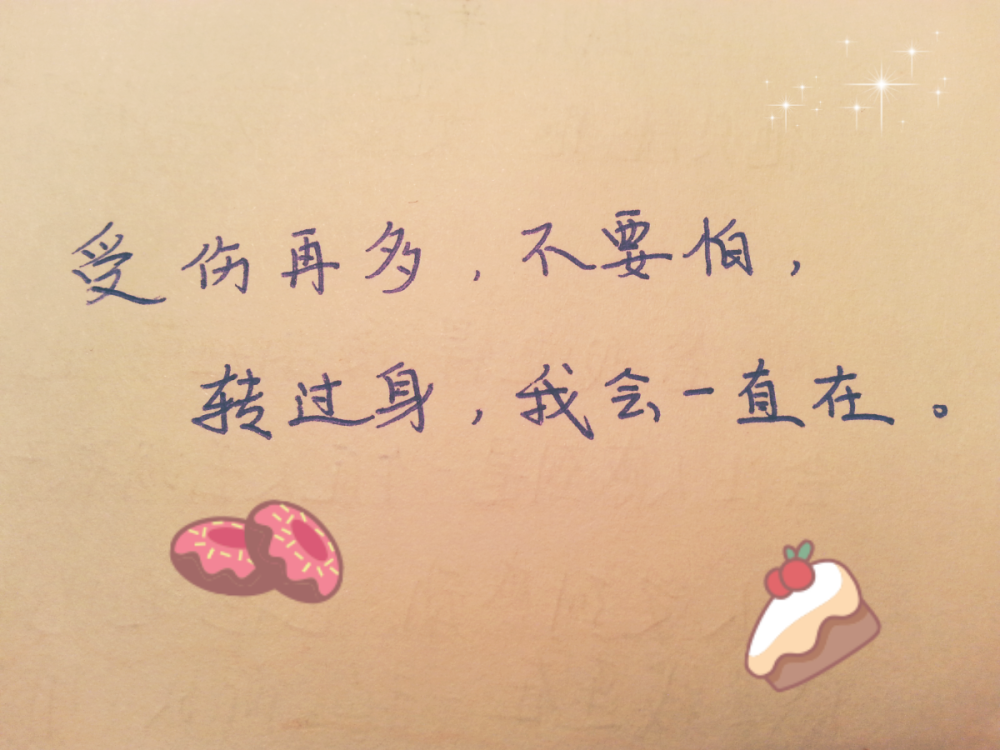 受伤再多，不要怕，
转过身，我会一直在。